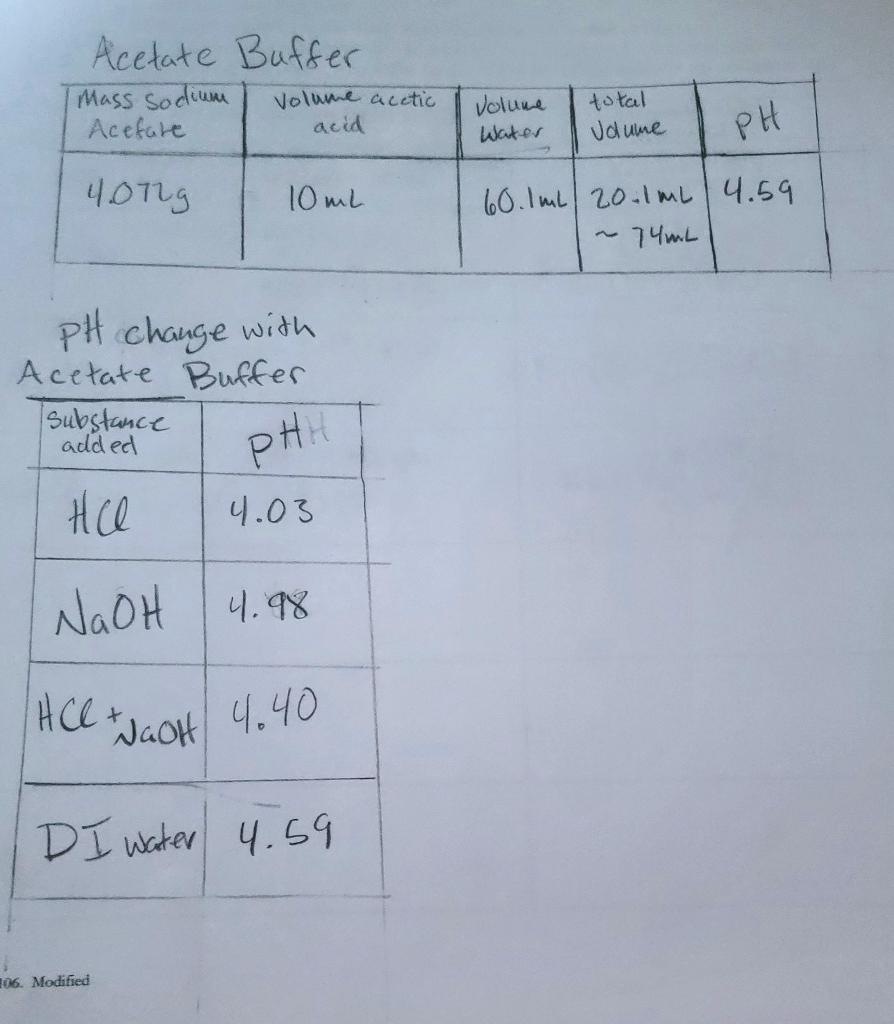 Acetate Buffer
Mass Sodium Acefate
Volume acetic acid
Volume Water
total Volume
pH
4.072g
10 mL
60.1mL
20.1mL
~ 74mL
4.59
pH change with
Acetate Buffer
Substance added
pH H
HCl
4.03
NaOH
4.98
HCl + NaOH
4.40
DI water
4.59
106. Modified